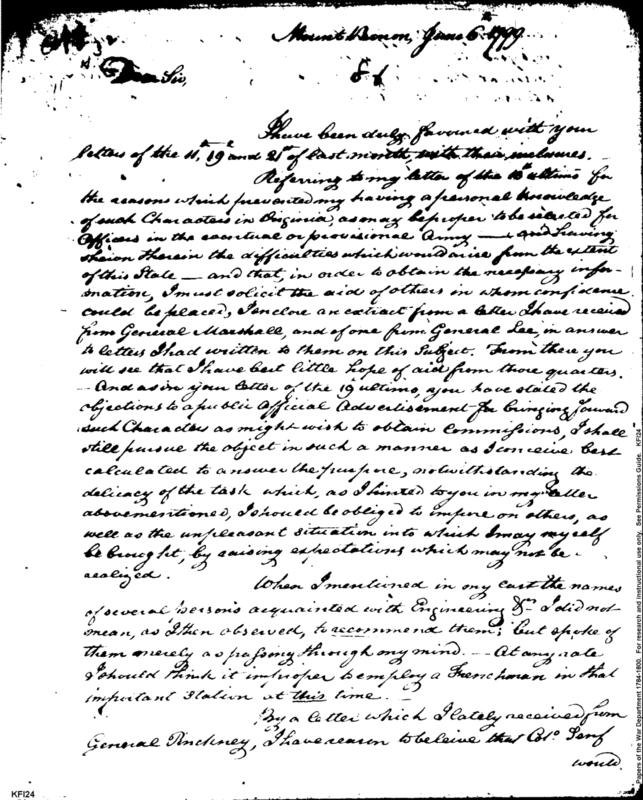 Mount Vernon, June 6th 1799
Dear Sir,
I have been duly favoured with your
letters of the 11th, 19th and 21st of last month, with their inclosures. —
Referring to my letter of the ultimo for
the reasons which prevented my having a personal knowledge
of such Characters in Virginia, as may be proper to be selected for
Officers in the eventual or provisional Army — and having
shewn therein the difficulties which would arise from the extent
of this State — and that, in order to obtain the necessary infor-
mation, I must solicit the aid of others in whom confidence
could be placed, I enclose an extract from a letter I have received
from General Marshall, and of one from General Lee, in answer
to letters I had written to them on this Subject. From these you
will see that I have but little hope of aid from those quarters.
— And as in your letter of the 19 ultimo, you have stated the
objections to a public Official Advertisement for bringing forward
such Characters as might wish to obtain Commissions, I shall
still pursue the object in such a manner as I conceive best
calculated to answer the purpose, notwithstanding the
delicacy of the task which, as I hinted to you in my letter
abovementioned, I should be obliged to impose on others, as
well as the unpleasant situation into which I may myself
be brought, by raising expectations which may not be
realized.
When I mentioned in my last the names
of several persons acquainted with Engineering &ca I did not
mean, as I then observed, to recommend them; but spoke of
them merely as passing through my mind. — At any rate
I should think it improper to employ a Frenchman in that
important Station at this time. —
By a letter which I lately received from
General Pinckney, I have reason to beleive that Colo. Senf
would
KFI24
Papers of the War Department 1784-1800. For research and instructional use only. See Permissions Guide. KFI24